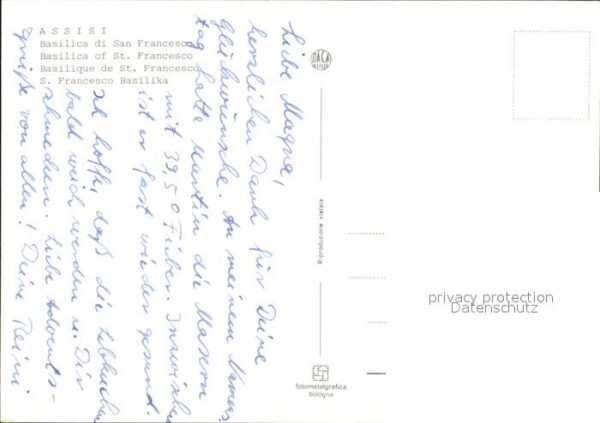 ASSISI
Basilica di San Francesco
Basilica of St. Francesco
Basilique de St. Francesco
S. Francesco Basilika
Liebe Magna,
herzlichen Dank für Deine
Glückwünsche. An meinem Namens-
tag hatte Martin die Masern
mit 39,5° Fieber. Inzwischen
ist er fast wieder gesund.
Ich hoffe, daß die Lebkuchen
bald weich werden u. Dir
schmecken. Liebe Advents-
grüße von allen! Deine Reini
DACA
Riproduzione vietata
fotometalgrafica
bologna
privacy protection
Datenschutz